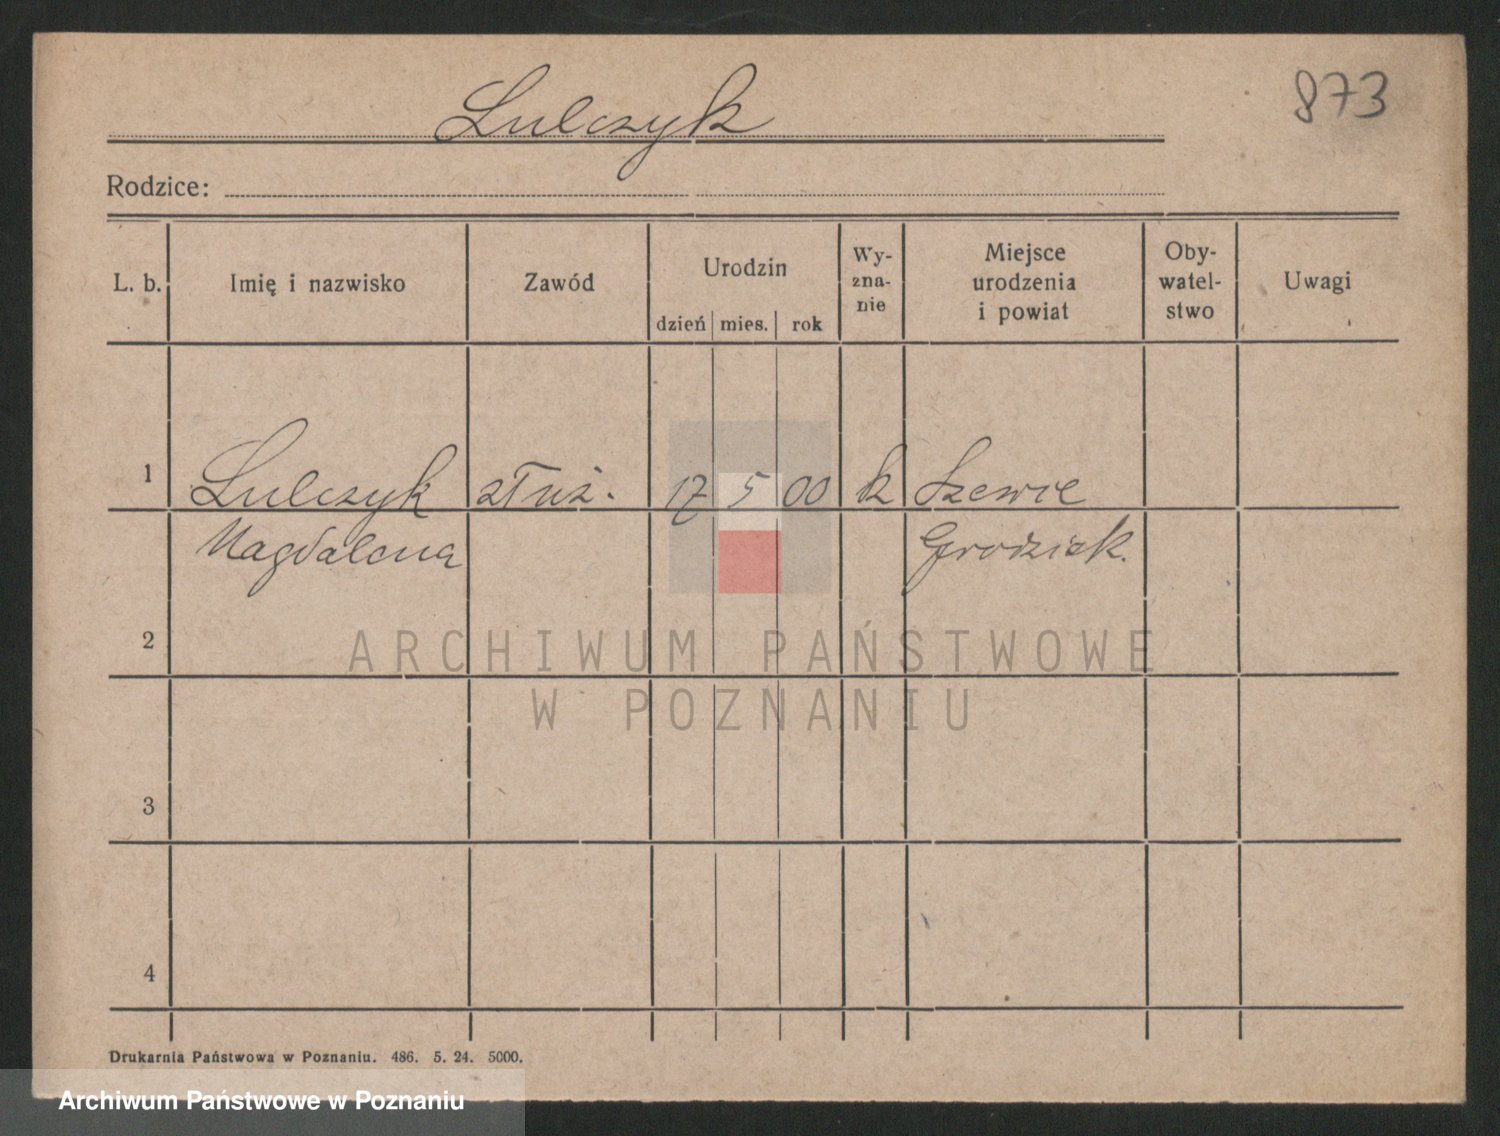 873
Lulczyk
Rodzice:
L. b.
Imię i nazwisko
Zawód
Urodzin
dzień mies. rok
Wy-
zna-
nie
Miejsce
urodzenia
i powiat
Oby-
watel-
stwo
Uwagi
1 Lulczyk służ. 17 5 00 k Szewce
Magdalena Grodzisk.
2
3
4
ARCHIWUM PAŃSTWOWE
W POZNANIU
Drukarnia Państwowa w Poznaniu. 486. 5. 24. 5000.
Archiwum Państwowe w Poznaniu